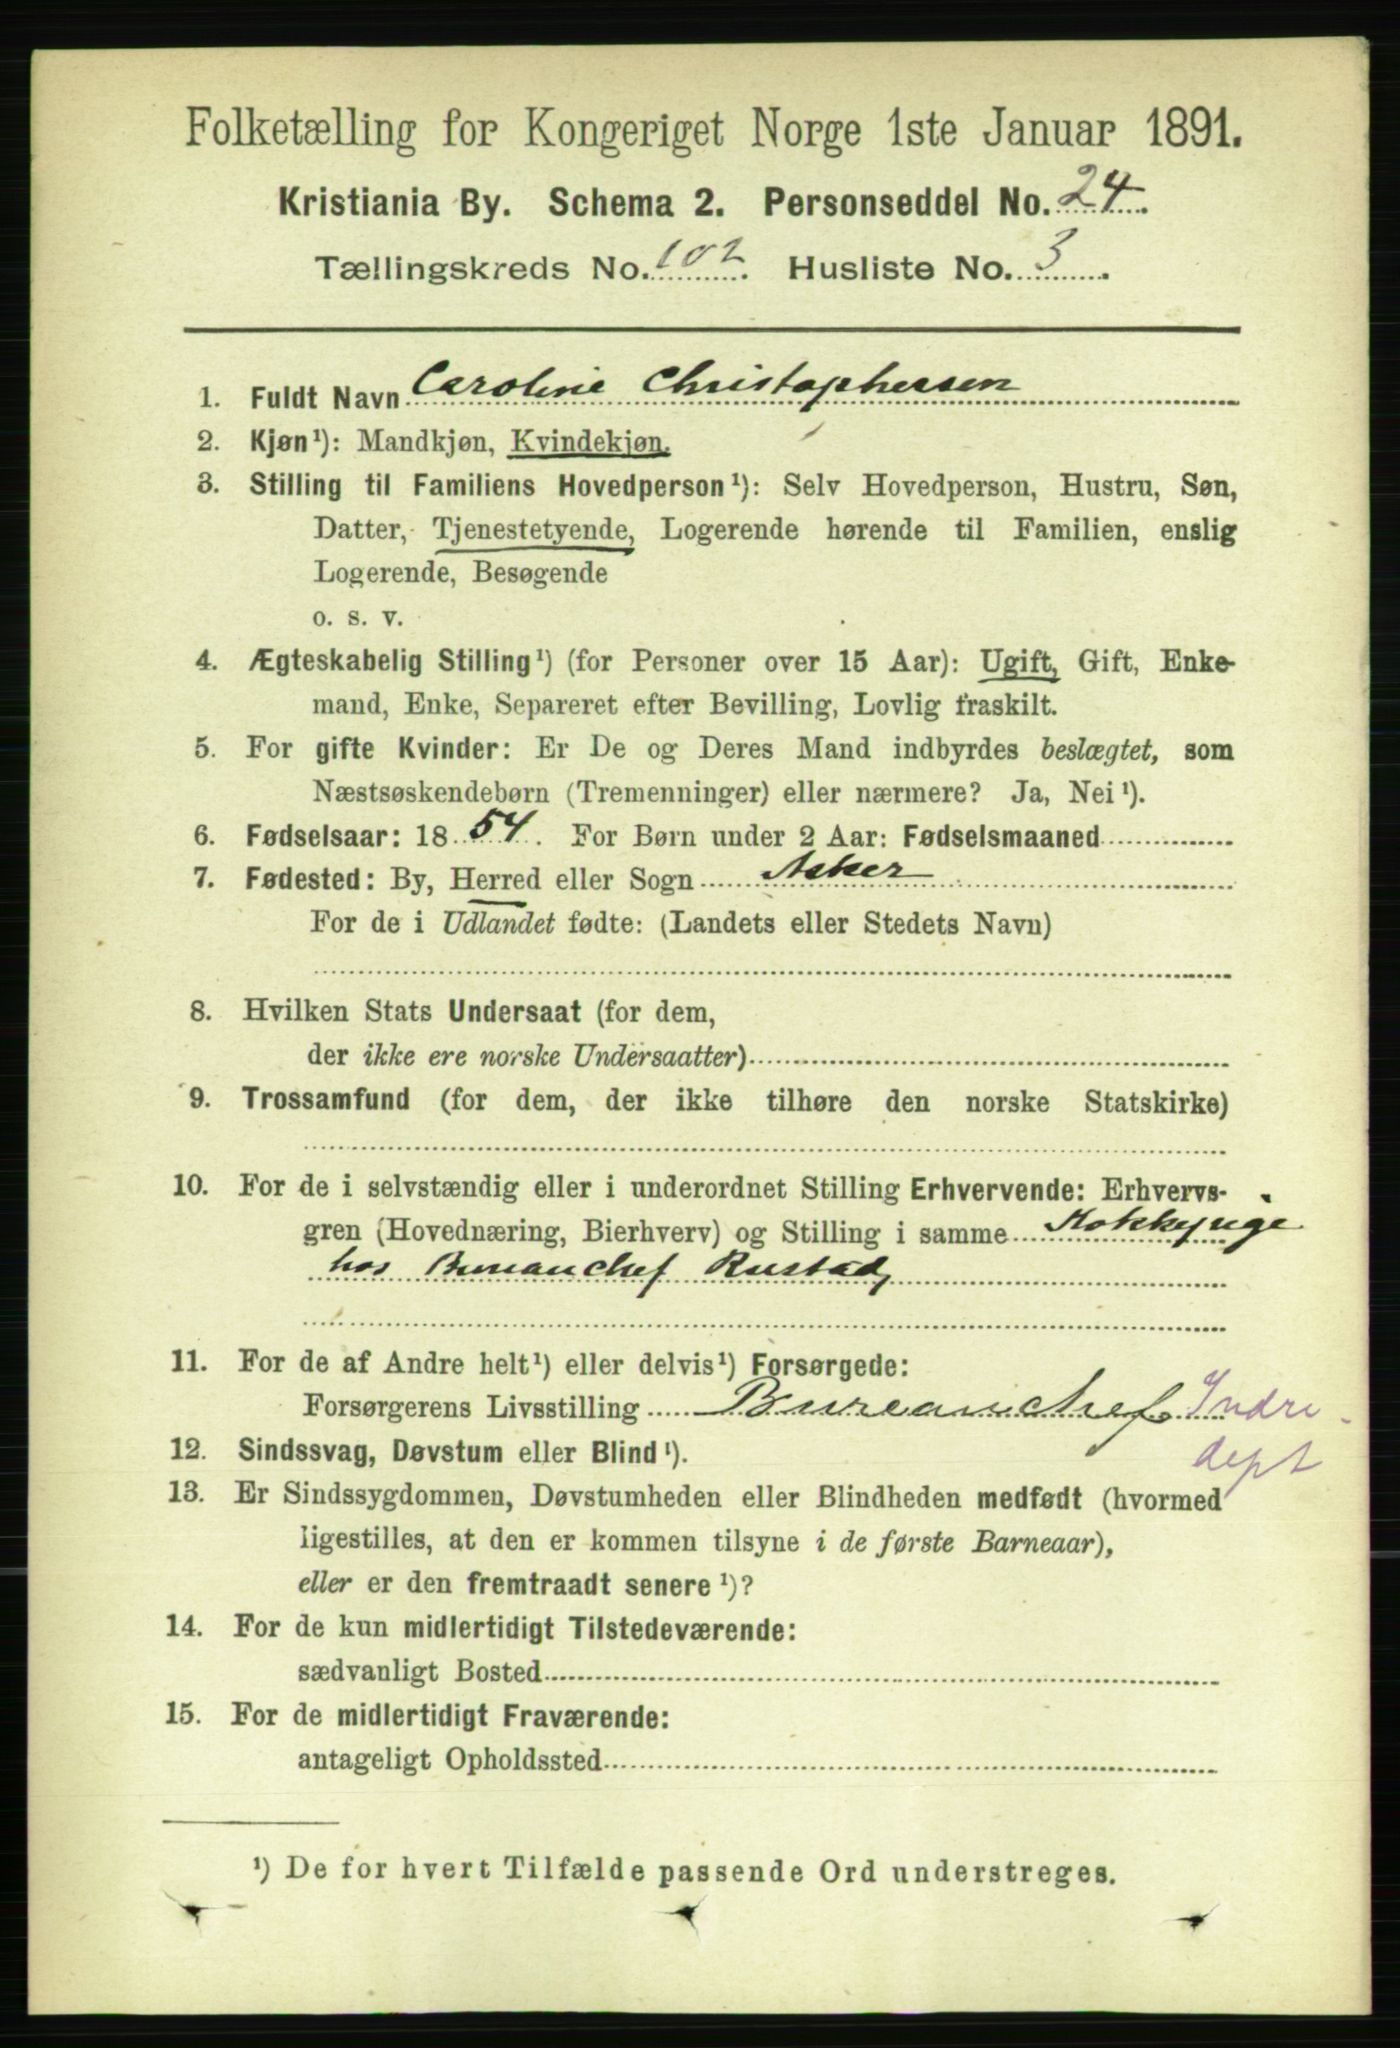 Folketælling for Kongeriget Norge 1ste Januar 1891.
Kristiania By. Schema 2. Personseddel No. 24.
Tællingskreds No. 102. Husliste No. 3.
1. Fuldt Navn Caroline Christophersen
2. Kjøn¹): Mandkjøn, Kvindekjøn.
3. Stilling til Familiens Hovedperson¹): Selv Hovedperson, Hustru, Søn,
Datter, Tjenestetyende, Logerende hørende til Familien, enslig
Logerende, Besøgende
o. s. v.
4. Ægteskabelig Stilling¹) (for Personer over 15 Aar): Ugift, Gift, Enke-
mand, Enke, Separeret efter Bevilling, Lovlig fraskilt.
5. For gifte Kvinder: Er De og Deres Mand indbyrdes beslægtet, som
Næstsøskendebørn (Tremenninger) eller nærmere? Ja, Nei¹).
6. Fødselsaar: 1854. For Børn under 2 Aar: Fødselsmaaned
7. Fødested: By, Herred eller Sogn Asker
For de i Udlandet fødte: (Landets eller Stedets Navn)
8. Hvilken Stats Undersaat (for dem,
der ikke ere norske Undersaatter)
9. Trossamfund (for dem, der ikke tilhøre den norske Statskirke)
10. For de i selvstændig eller i underordnet Stilling Erhvervende: Erhvervs-
gren (Hovednæring, Bierhverv) og Stilling i samme Kokkepige
hos Bureauchef Rustad
11. For de af Andre helt¹) eller delvis¹) Forsørgede:
Forsørgerens Livsstilling Bureauchef. Indre-
dept
12. Sindssvag, Døvstum eller Blind¹).
13. Er Sindssygdommen, Døvstumheden eller Blindheden medfødt (hvormed
ligestilles, at den er kommen tilsyne i de første Barneaar),
eller er den fremtraadt senere¹)?
14. For de kun midlertidigt Tilstedeværende:
sædvanligt Bosted
15. For de midlertidigt Fraværende:
antageligt Opholdssted
¹) De for hvert Tilfælde passende Ord understreges.